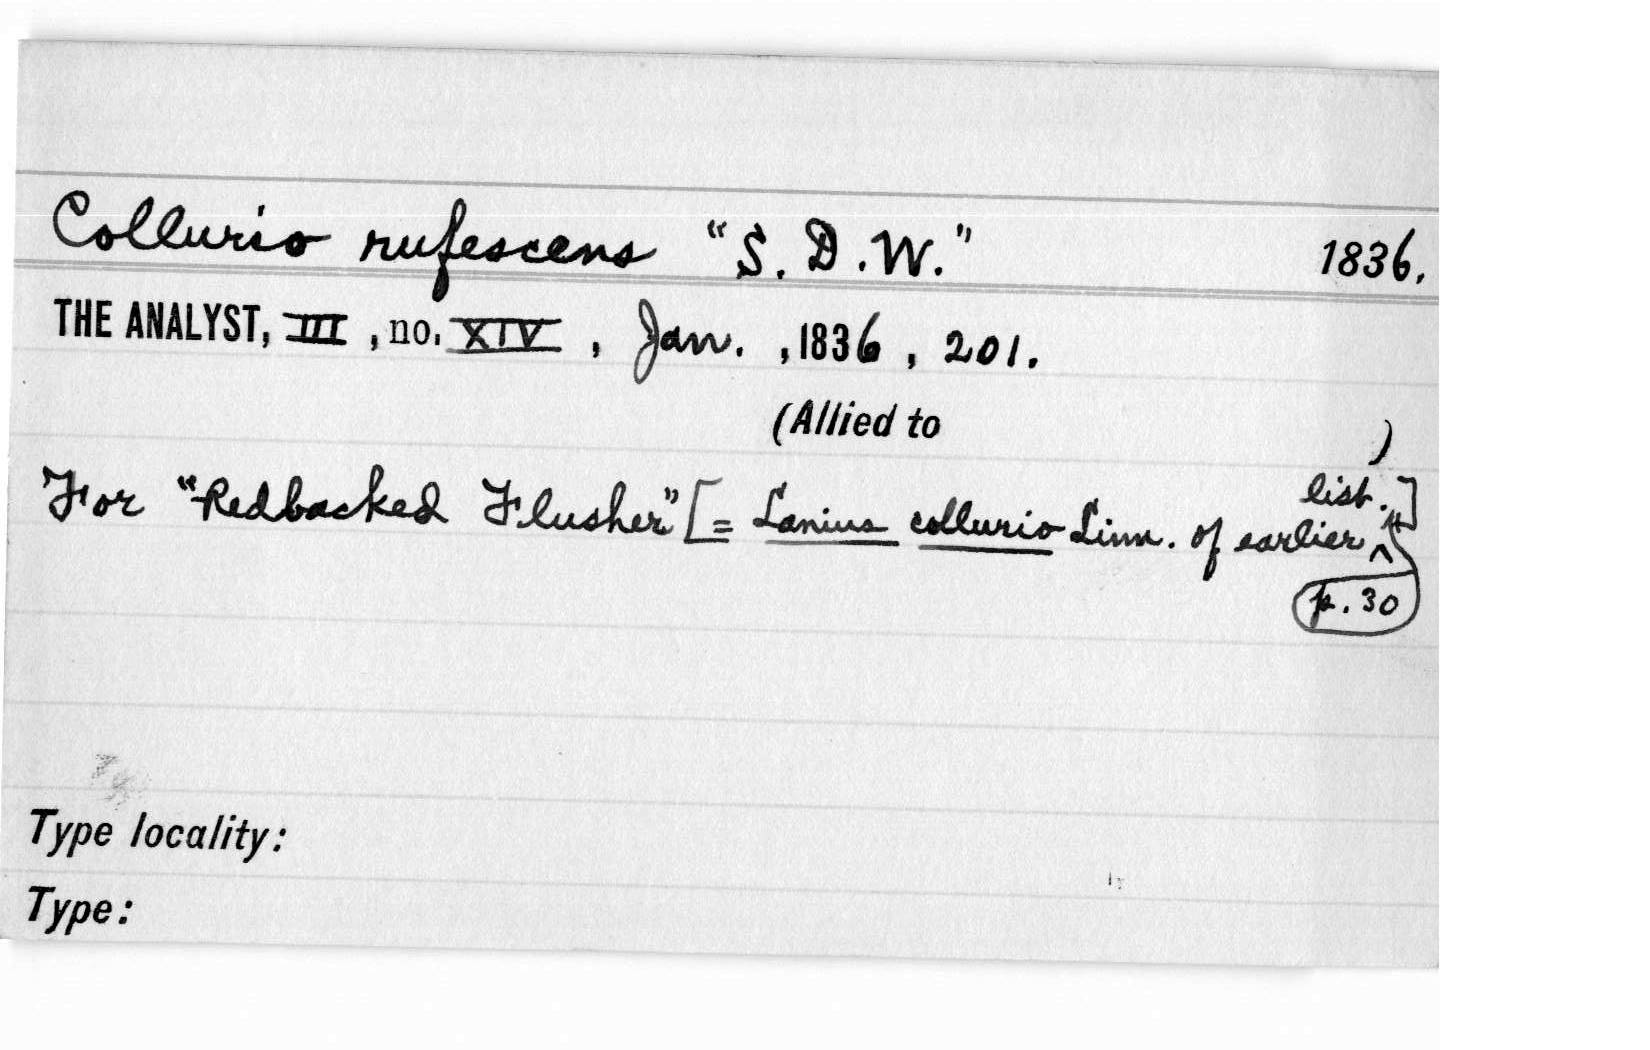 Collurio rufescens "S. D. W." 1836.
THE ANALYST, III, no. XIV, Jan., 1836, 201.
(Allied to )
For "Redbacked Flusher" [= Lanius collurio Linn. of earlier ^ list.]
p. 30
Type locality:
Type: